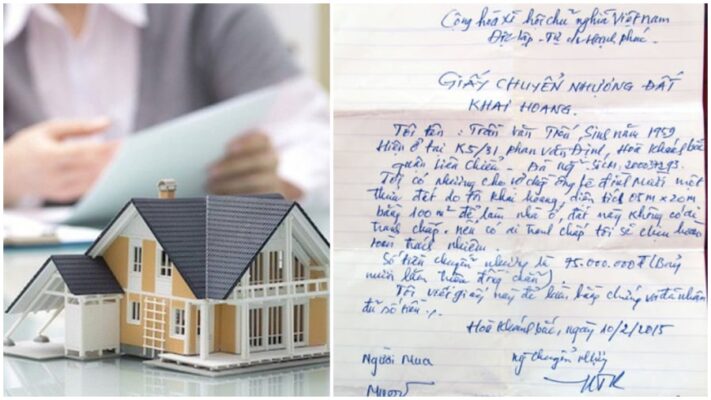 Cộng hòa xã hội chủ nghĩa Việt Nam
Độc lập - Tự do Hạnh phúc.
GIẤY CHUYỂN NHƯỢNG ĐẤT
KHAI HOANG.
Tôi tên : Trần Văn Tiến, Sinh năm 1959
Hiện ở tại K5/31 Phan Văn Định, Hoà Khánh bắc
quận Liên Chiểu. Đà Nẵng
Tôi có nhường cho vợ chồng ông lê đình Mười một
thửa đất do tôi khai hoang, diện tích 05m x 20m
bằng 100m² để làm nhà ở, đất này không có ai
tranh chấp. nếu có ai tranh chấp tôi sẽ chịu hoàn
toàn trách nhiệm.
Số tiền chuyển nhượng là 75.000.000đ (Bảy
mươi lăm triệu đồng chẵn)
Tôi viết giấy này để làm bằng chứng và đã nhận
đủ số tiền.
Hoà Khánh bắc, ngày 10/2/2015
Người Mua
ng chuyển nhượng
Mười